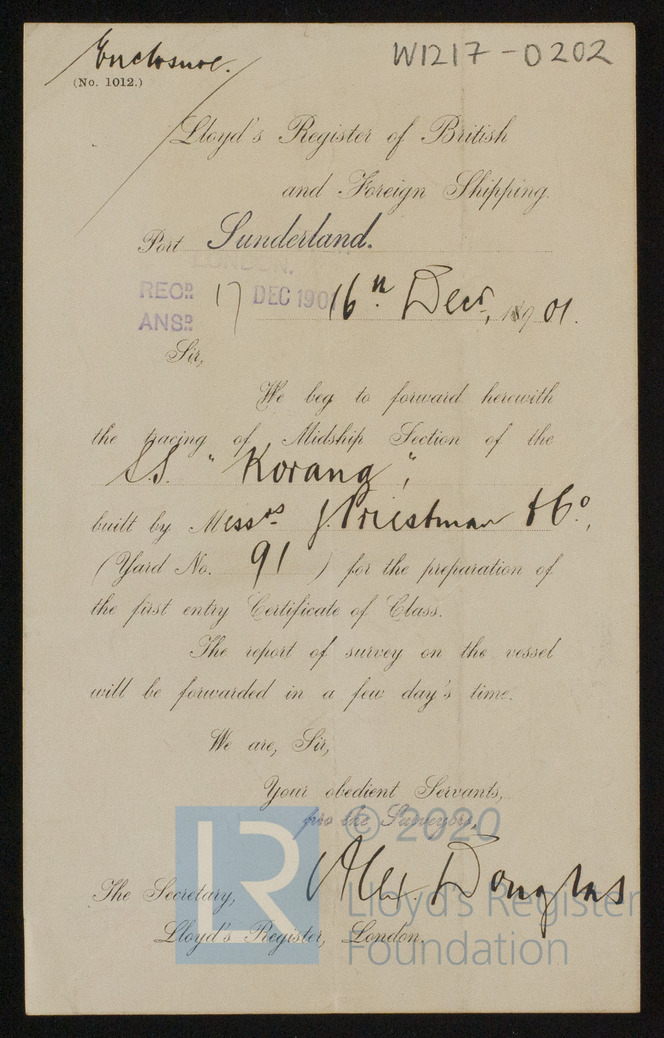 Enclosure.
W1217-0202
(No. 1012.)
Lloyd's Register of British
and Foreign Shipping.
Port Sunderland.
LONDON.
RECD 17 DEC 190
ANSD
16th Decr, 1901.
Sir,
We beg to forward herewith
the tracing of Midship Section of the
S.S. "Korang",
built by Messrs J. Priestman & Co.,
(Yard No. 91) for the preparation of
the first entry Certificate of Class.
The report of survey on the vessel
will be forwarded in a few day's time.
We are, Sir,
Your obedient Servants,
pro the Surveyors,
© 2020
Alex. Douglas
The Secretary,
Lloyd's Register, London.
LR
Lloyd's Register
Foundation